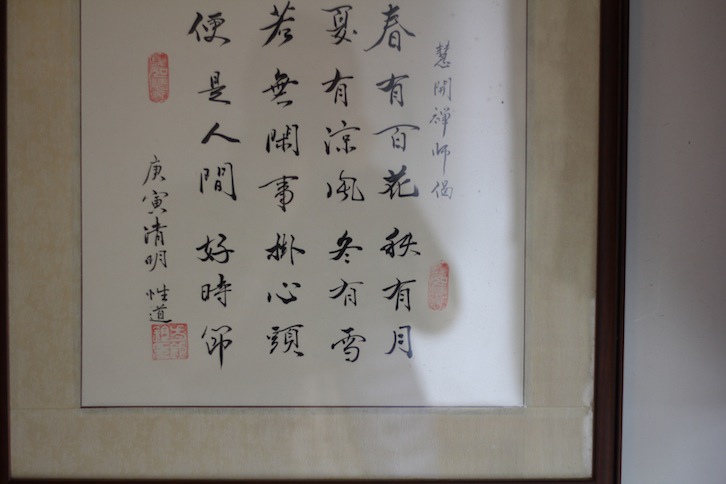 慧開禪師偈
春有百花秋有月
夏有涼風冬有雪
若無閑事掛心頭
便是人間好時節
庚寅清明 性道